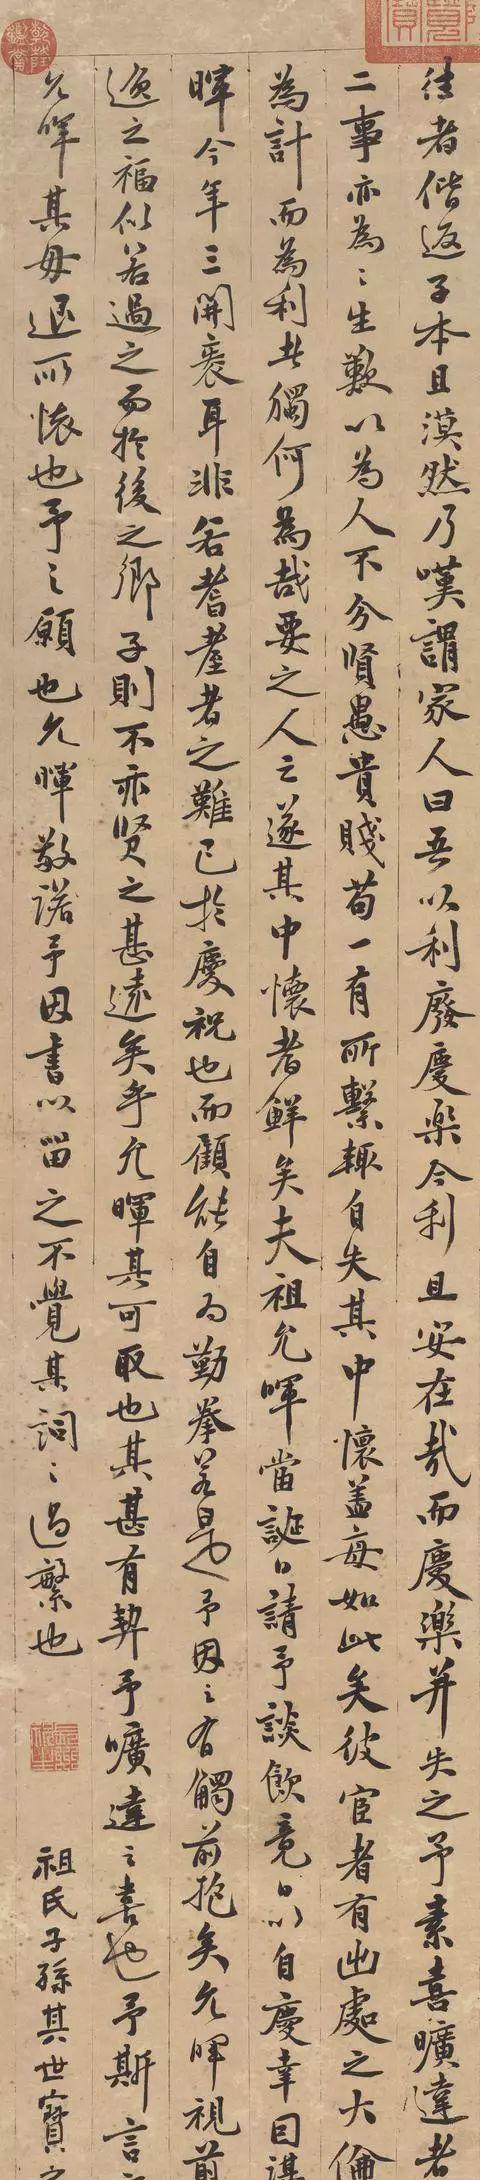 往者偕返子本且漠然乃嘆謂家人曰吾以利廢慶樂今利且安在哉而慶樂并失之予素喜曠達者
二事亦為〻生歎以為人不分賢愚貴賤苟一有所繫輒自失其中懷盖每如此矣彼宦者有出處之大倫
為計而為利者獨何為哉要之人之遂其中懷者鮮矣夫祖允暉當誕日請予談飲竟日以自慶幸曰謀
暉今年三開袠耳非若耆耋者之難已於慶祝也而顧能自為勤拳若是予因之有觸前抱矣允暉視前
逸之福似若過之而於後之鄉子則不亦賢之甚遠矣乎允暉其可取也其甚有契予曠達之喜也予斯言
允暉其毋退所懷也予之願也允暉敬諾予因書以留之不覺其詞〻過繁也
祖氏子孫其世寶之